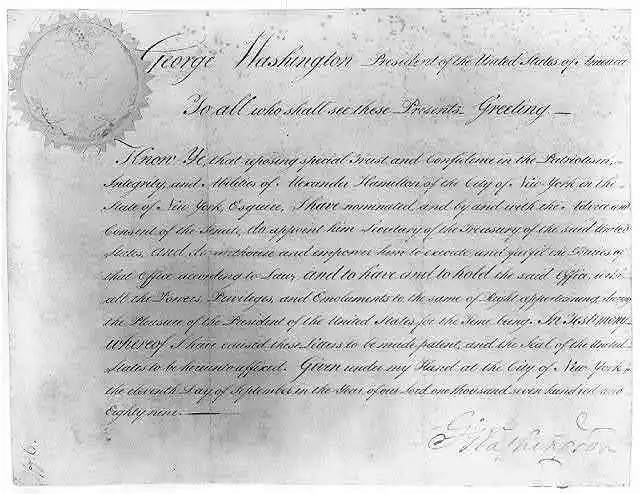 George Washington President of the United States of America
To all who shall see these Presents Greeting —
Know Ye, that reposing special Trust and Confidence in the Patriotism,
Integrity, and Abilities of Alexander Hamilton of the City of New York in the
State of New York, Esquire, I have nominated and by and with the Advice and
Consent of the Senate, do appoint him Secretary of the Treasury of the said United
States, and do authorize and empower him to execute and fulfil the Duties of
that Office according to Law; and to have and to hold the said Office, with
all the Powers, Privileges, and Emoluments to the same of Right appertaining, during
the Pleasure of the President of the United States for the Time being. In Testimony
whereof I have caused these Letters to be made patent, and the Seal of the United
States to be hereunto affixed. Given under my Hand at the City of New York
the eleventh Day of September in the Year of our Lord one thousand seven hundred and
Eighty nine.—
G Washington